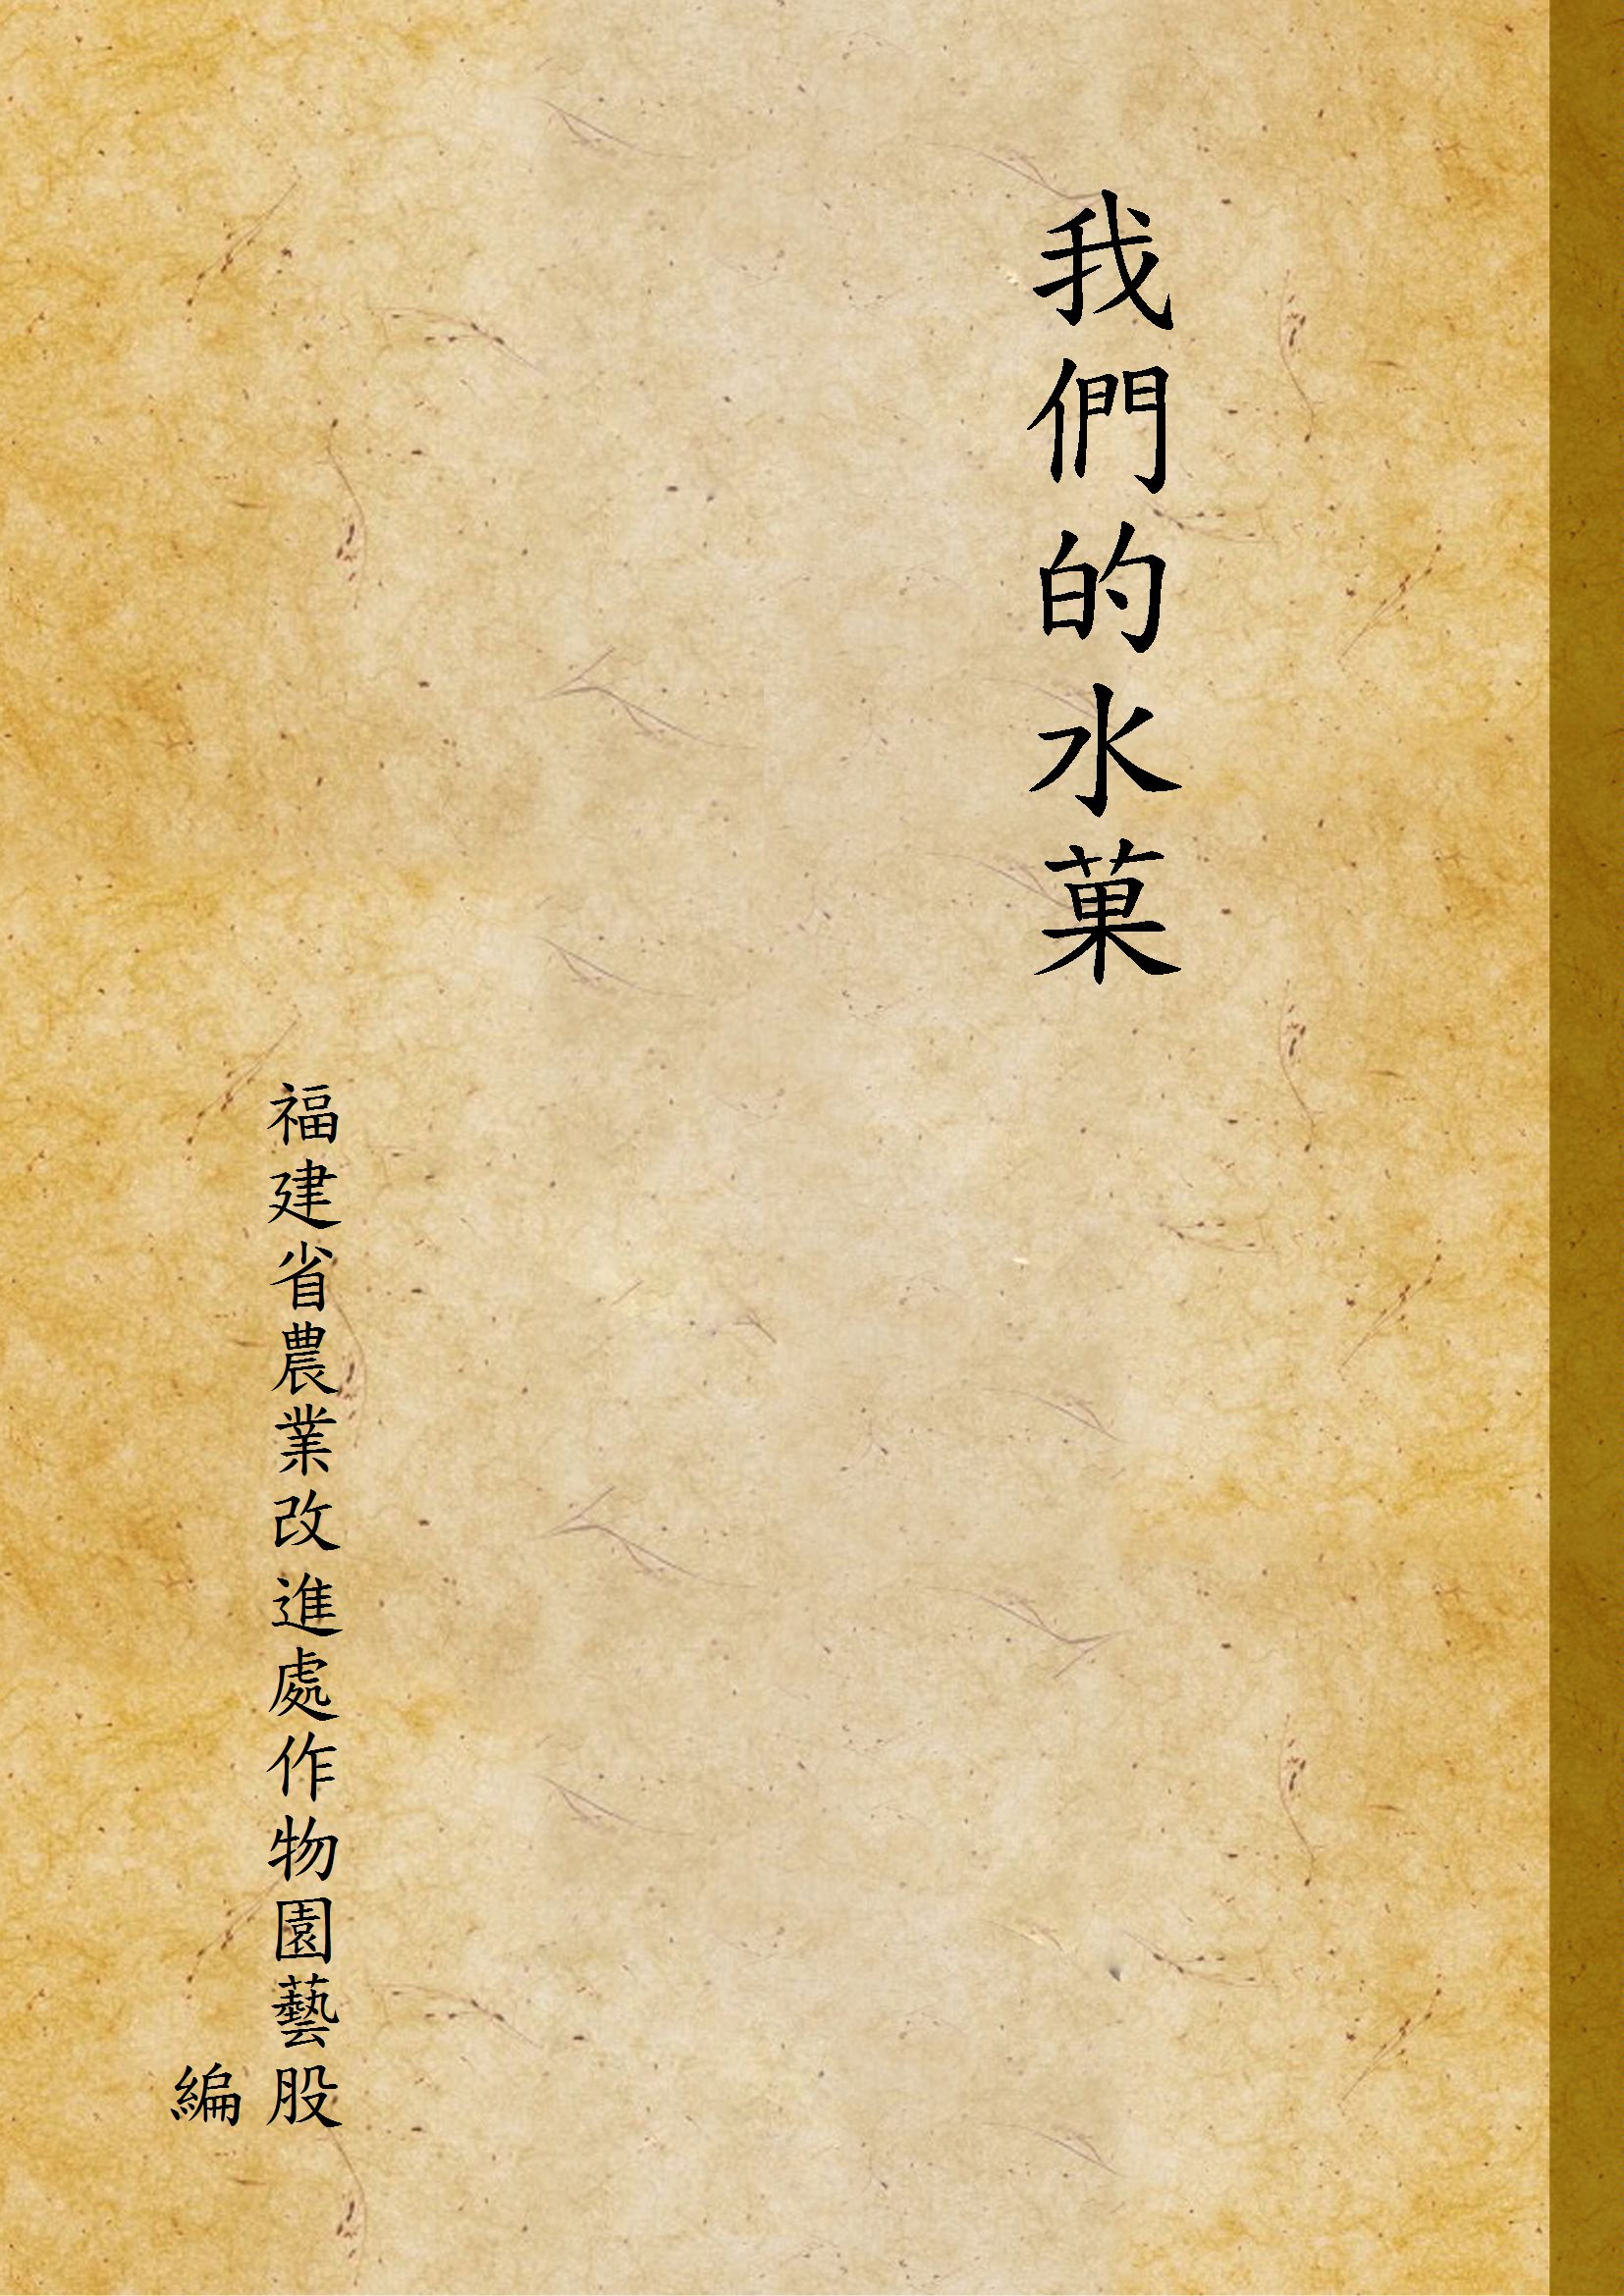 我們的水菓
福建省農業改進處作物園藝股
編